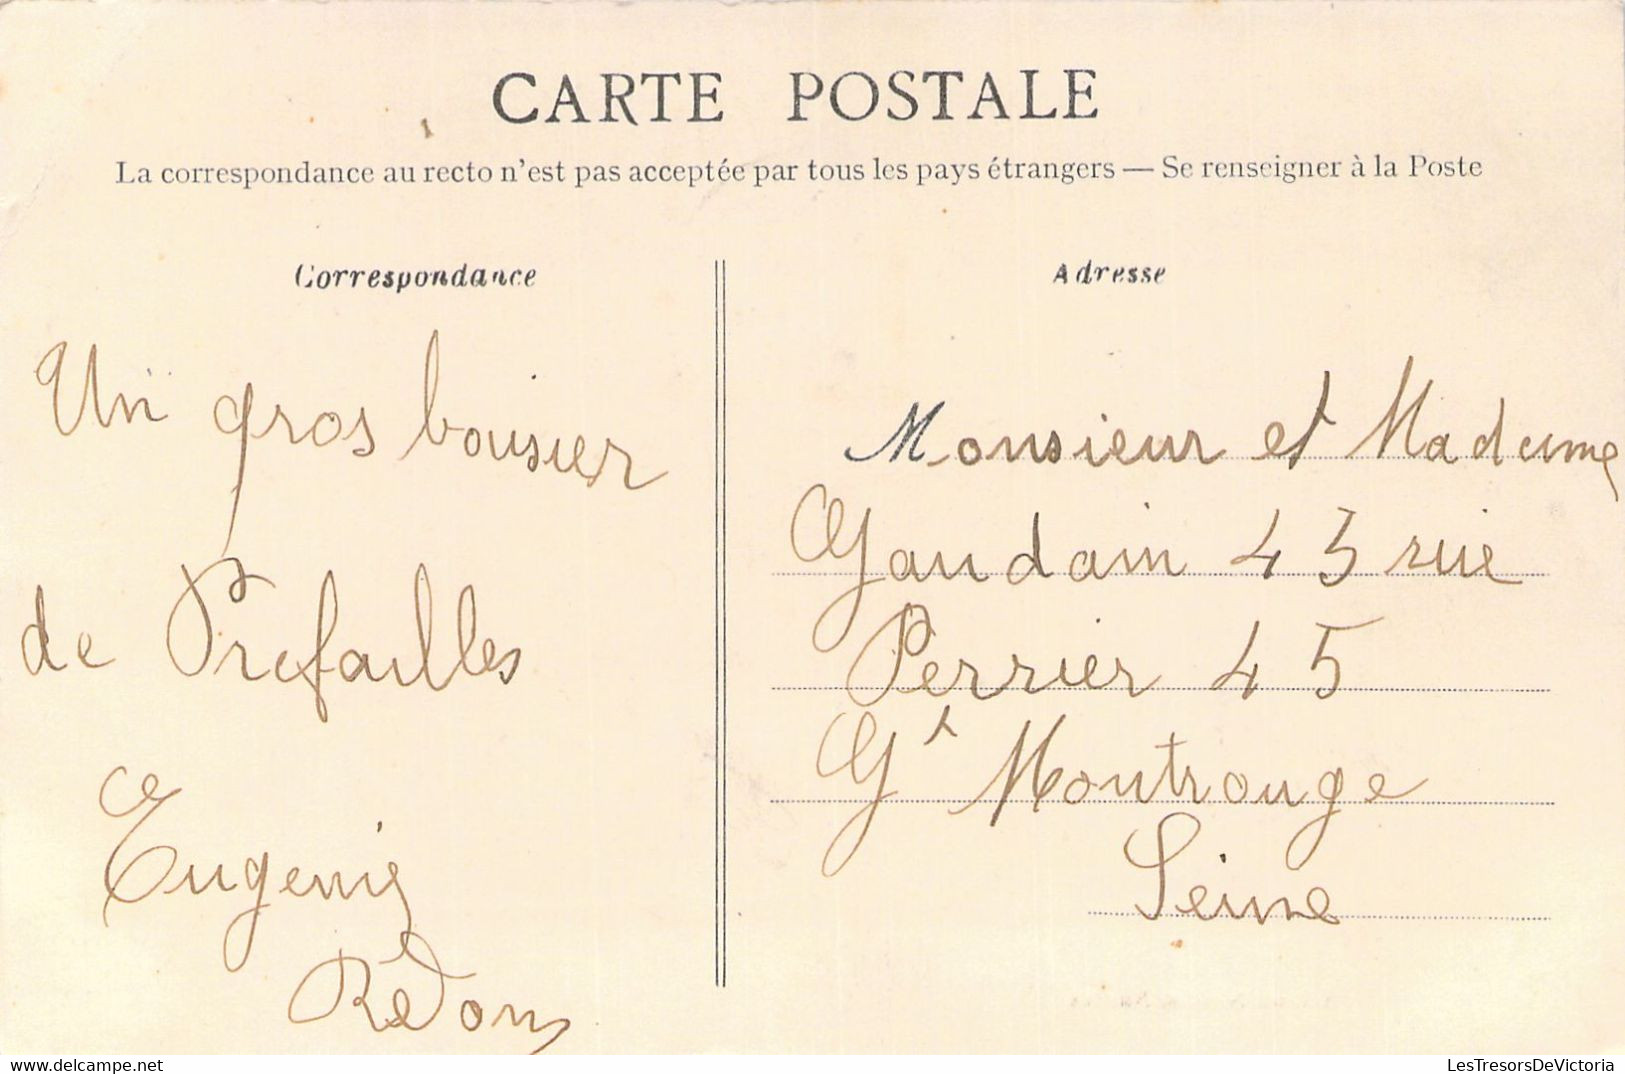 CARTE POSTALE
La correspondance au recto n'est pas acceptée par tous les pays étrangers — Se renseigner à la Poste
Correspondance
Un gros bousier
de Prefailles
Eugenie
Redon
Adresse
Monsieur et Madame
Gaudain 45 rue
Perrier 45
Gt Montrouge
Seine
delcampe.net
LesTresorsDeVictoria